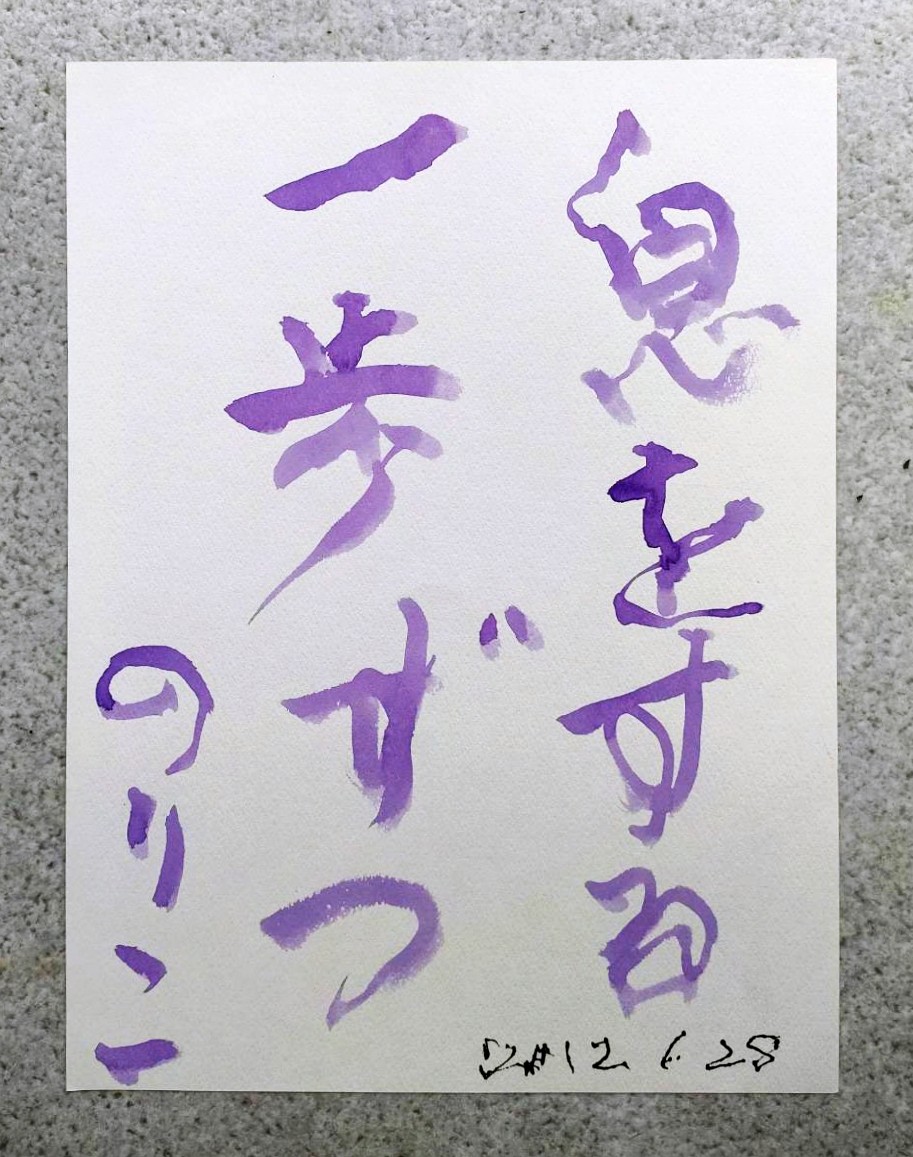 息をする
一歩ずつ
のりこ
12 6 28